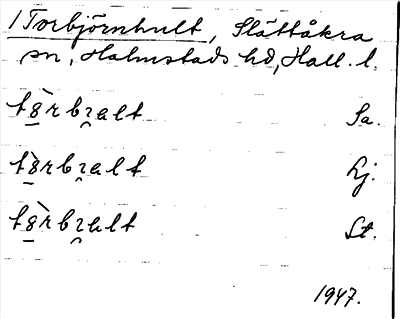 1 Torbjörnhult, Slättåkra
sn, Halmstads hd, Hall. l.
tȣ̀rbɿalt Sa.
tȣ̀rbɿalt Lj.
tȣ̀rbɿalt St.
1947.